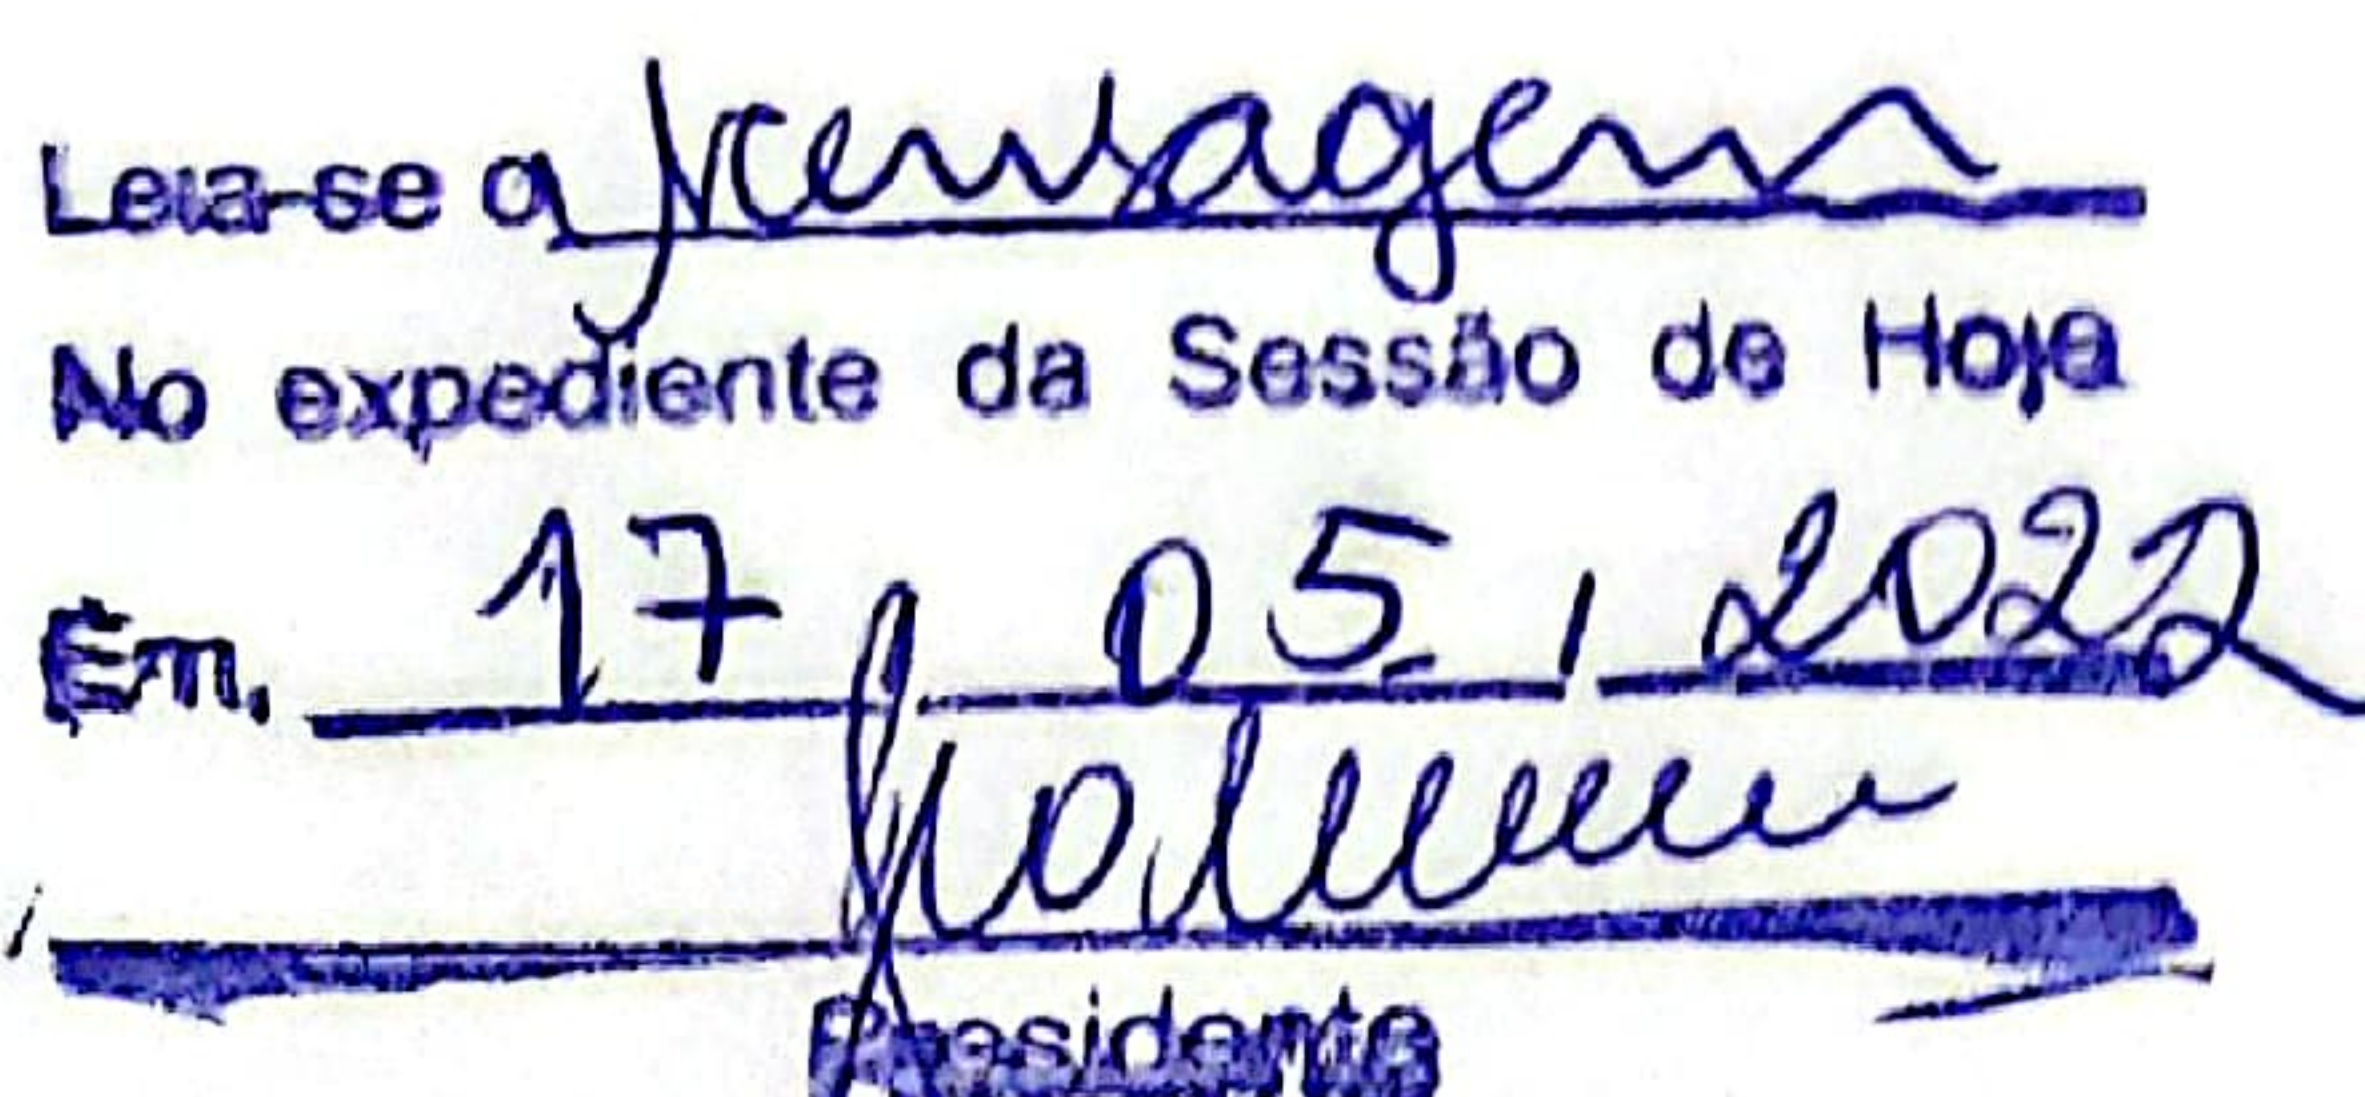 Leia-se a Mensagem
No expediente da Sessão de Hoje
Em. 17 / 05 / 2022
Presidente